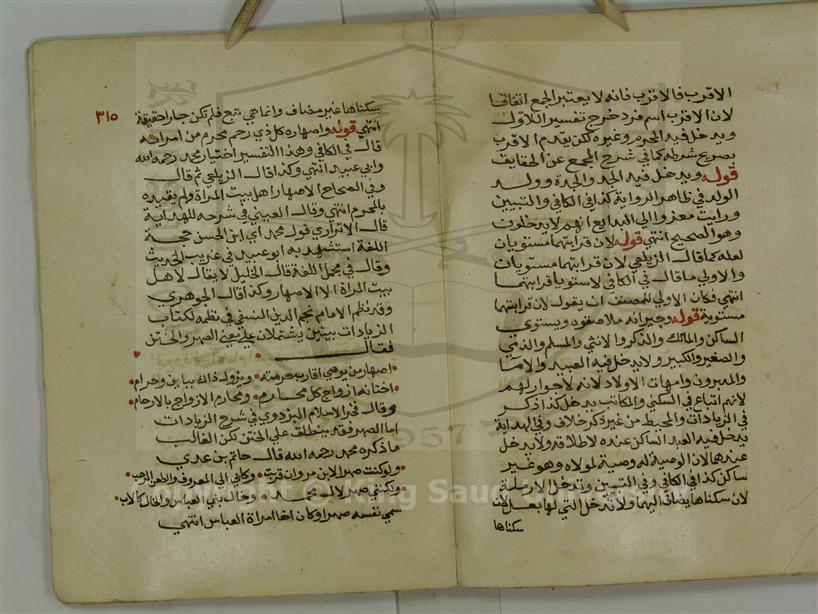 الاقرب فالاقرب فانه لا يعتبر الجمع اتفاقا
لان الاقرب اسم فرد خرج تفسيرا للاول
ويدخل فيه المحرم وغيره لكن يقدم الاقرب
بصريح شرطه كما في شرح المجمع عن الحقايق
قوله ويدخل فيه الجد والجدة وولد
الولد في ظاهر الرواية كذا في الكافي والتبيين
ورايت معزوا الي البدايع انهم لا يدخلون
وهو الصحيح انتهي قوله لان قرابتهما مستويان
لعله كما قال الزيلعي لان قرابتهما مستويان
والاولي ما قال في الكافي لاستوا قرابتهما
انتهي فكان الاولي للمصنف ان يقول لان قرابتهما
مستوية قوله وجيرانه ملاصقوه ويستوي
الساكن والمالك والذكر والانثي والمسلم والذمي
والصغير والكبير ولا يدخل فيه العبيد والاما
والمدبرون وامهات الاولاد لانه لا جوار لهم
لانهم اتباع في السكني والمكاتب يدخل كذا ذكر
في الزيادات والمحيط من غير ذكر خلاف وفي الهداية
يدخل فيه العبد الساكن عنده لاطلاقه ولا يدخل
عندهما لان الوصية له وصية لمولاه وهو غير
ساكن كذا في الكافي وفي التبيين وتدخل الارملة
لان سكناها يضاف اليها ولا تدخل التي لها بعل لان
سكناها
٣١٥
سكناها غير مضاف وانما هي تبع فلم تكن جارا حقيقة
انتهي قوله واصهاره كل ذي رحم محرم من امراته
قال في الكافي وهذا التفسير اختيار محمد رحمه الله
وابي عبيد انتهي وكذا قال الزيلعي ثم قال
وفي الصحاح الاصهار اهل بيت المراة ولم يقيده
بالمحرم انتهي وقال العيني في شرحه للهداية
قال الاتراري قول محمد اي ابن الحسن حجة
اللغة استشهد به ابو عبيد في غريب الحديث
وقال في مجمل اللغة قال الخليل لا يقال لاهل
بيت المراة الا الاصهار وكذا قال الجوهري
وقد نظم الامام نجم الدين النسفي في نظمه لكتاب
الزيادات بيتين يشتملان علي معني الصهر والختن
فقال
اصهار من يوصي اقارب عرسه ويزول ذاك بباين وحرام
اختانه ازواج كل محارم ومحارم الازواج بالارحام
وقال فخر الاسلام البزدوي في شرح الزيادات
اما الصهر فقد يطلق علي الختن لكن الغالب
ما ذكره محمد رحمه الله قال حاتم بن عدي
ولو كنت صهرا لابن مروان قربت
وكنتي صهر لال محمد وخال بني العباس والخال كالاب
سمي نفسه صهرا وكان اخا امراة العباس انتهي
Copyright © King Saud University
1957